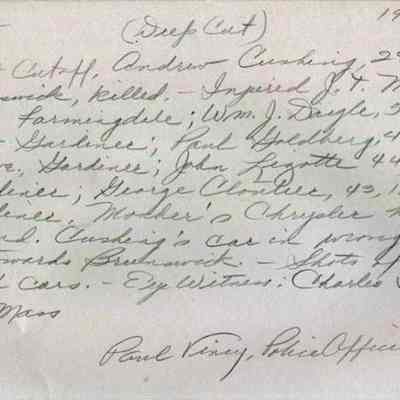 (Deep Cut) 19
Cutoff, Andrew Cushing, 29
swick, killed. - Injured J. T. M
Farmingdale; Wm. J. Daigle, 5
- Gardiner; Paul Goldberg, 4
ve. Gardiner; John Lizotte 44
diner; George Cloutier, 43, 1
diner. Mosher's Chrysler h
nd. Cushing's car in wrong
owards Brunswick. - Shots of
cars. - Eye Witness: Charles
Mass
Paul Viney, Police Offic